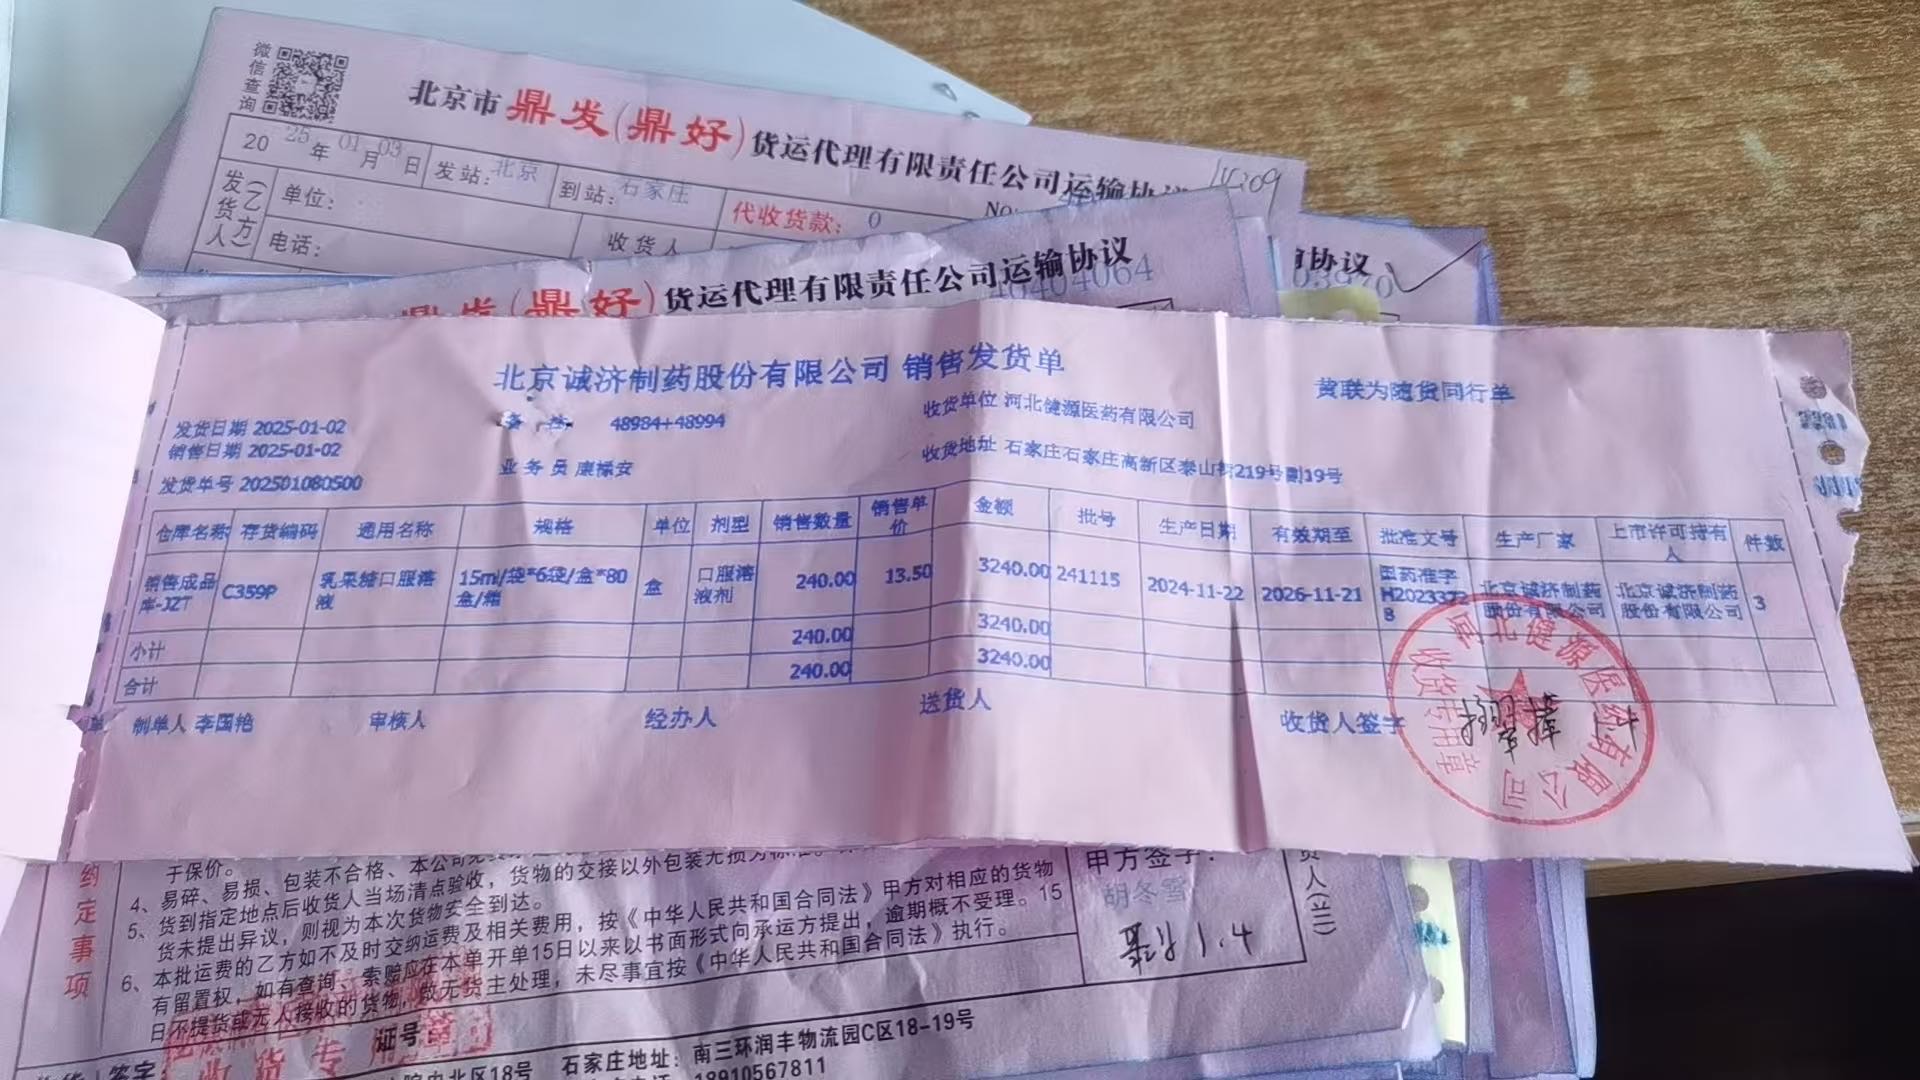 微信查询
北京市鼎发(鼎好)货运代理有限责任公司运输协议
2025年01月03日 发站:北京 到站:石家庄 代收货款: 0 No
发货人(乙方) 单位:
电话: 收货人
鼎发(鼎好)货运代理有限责任公司运输协议
协议
北京诚济制药股份有限公司 销售发货单
黄联为随货同行单
发货日期 2025-01-02 48984+48994 收货单位 河北健源医药有限公司
销售日期 2025-01-02
业务员 收货地址 石家庄石家庄高新区泰山街219号副19号
发货单号 202501080500
仓库名称 存货编码 通用名称 规格 单位 剂型 销售数量 销售单价 金额 批号 生产日期 有效期至 批准文号 生产厂家 上市许可持有人 件数
销售成品库-JZT C359P 乳果糖口服溶液 15ml/袋*6袋/盒*80盒/箱 盒 口服溶液剂 240.00 13.50 3240.00 241115 2024-11-22 2026-11-21 国药准字H20233728 北京诚济制药股份有限公司 北京诚济制药股份有限公司 3
小计 240.00 3240.00
合计 240.00 3240.00
制单人 李国艳 审核人 经办人 送货人 收货人签字
河北健源医药有限公司
收货专用章
约定事项
于保价。
4、易碎、易损、包装不合格、本公司免责 货物的交接以外包装无损为标准。
5、货到指定地点后收货人当场清点验收,
货未提出异议,则视为本次货物安全到达。
6、本批运费的乙方如不及时交纳运费及相关费用,按《中华人民共和国合同法》甲方对相应的货物
有留置权,如有查询、索赔应在本单开单15日以来以书面形式向承运方提出,逾期概不受理。15
日不提货或无人接收的货物,做无货主处理,未尽事宜按《中华人民共和国合同法》执行。
甲方签字:
胡冬雪
1.4
证号
签字
北区18号 石家庄地址:南三环润丰物流园C区18-19号
18910567811